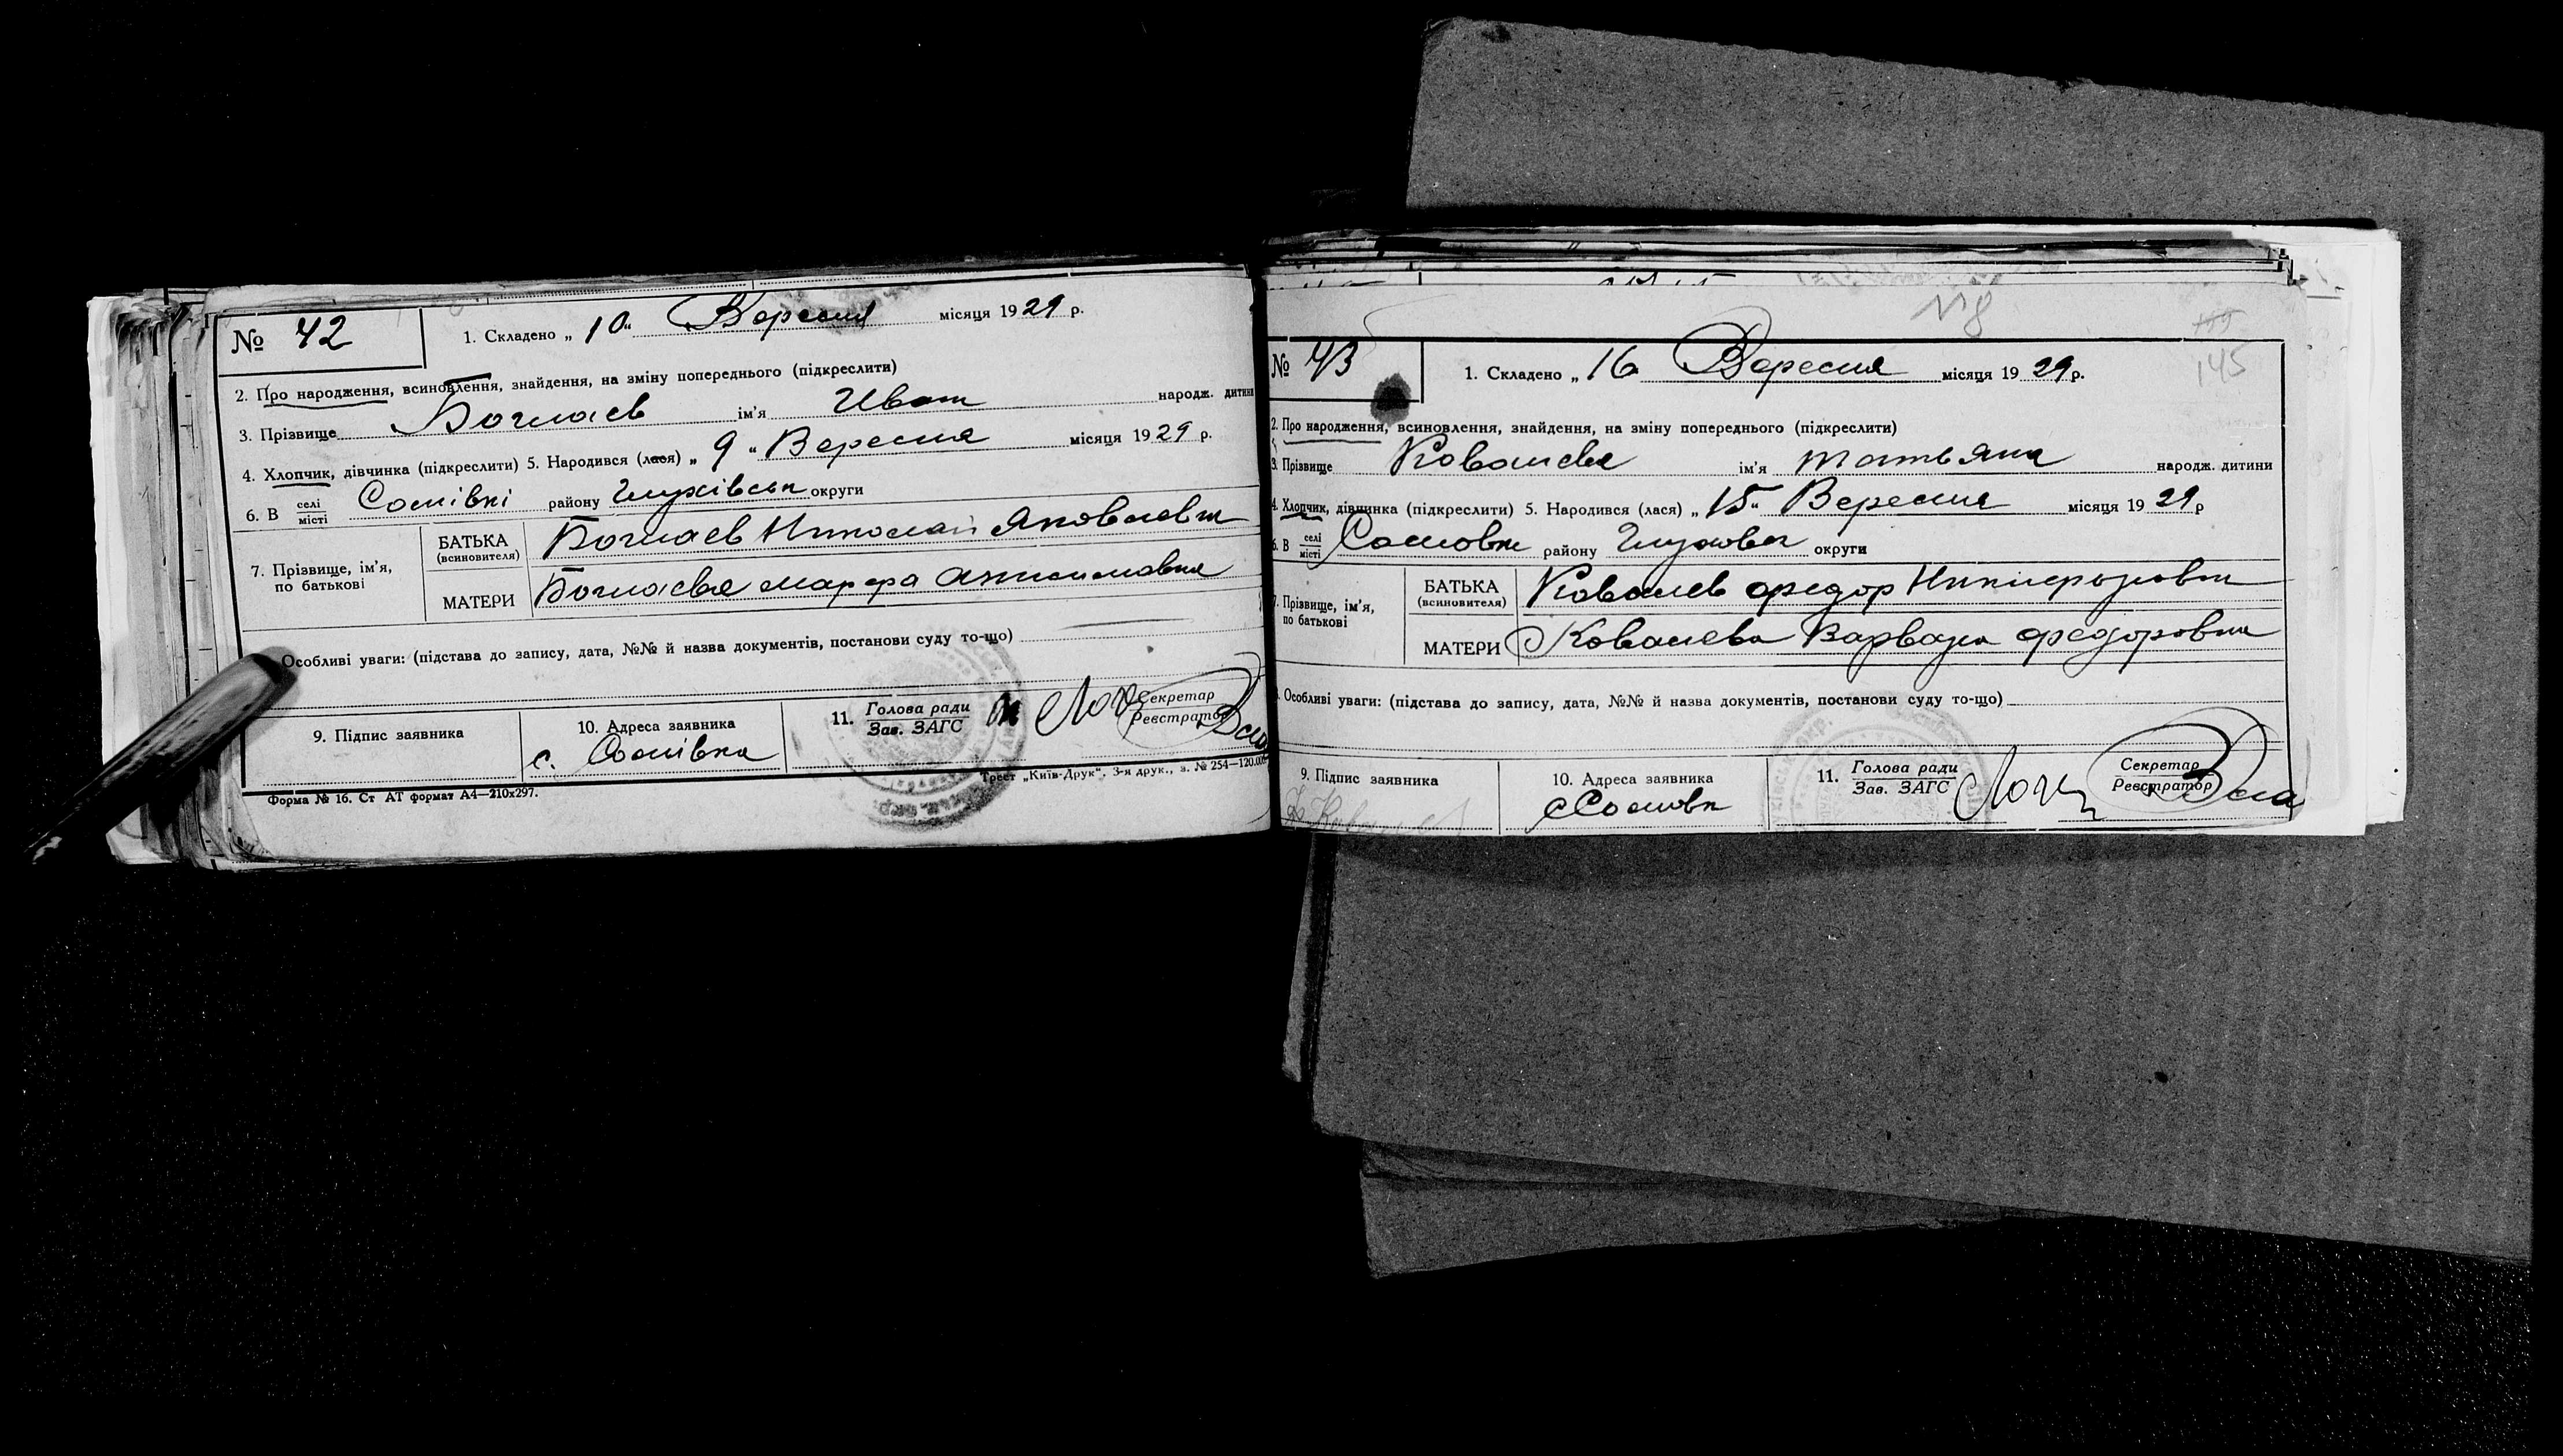 № 42
1. Складено „ 10 “ Вересня місяця 1929 р.
2. Про народження, всиновлення, знайдення, на зміну попереднього (підкреслити)
3. Прізвище ім’я Иван народж. дитини
4. Хлопчик, дівчинка (підкреслити) 5. Народився (лася) „ 9 “ Вересня місяця 1929 р.
6. В селі місті Сопівкі району Глухівськ округи
7. Прізвище, ім’я, по батькові
БАТЬКА (всиновителя) Николай Яковлевич
МАТЕРИ Марфа
Особливі уваги: (підстава до запису, дата, №№ й назва документів, постанови суду то-що)
9. Підпис заявника
10. Адреса заявника
с.
11. Голова ради Зав. ЗАГС
Секретар Реєстратор
Форма № 16. Ст АТ формат А4—210х297.
Трест „Київ-Друк“. 3-я друк., з. № 254—120.000
№8
145
№ 43
1. Складено „ 16 Вересня місяця 1929 р.
2. Про народження, всиновлення, знайдення, на зміну попереднього (підкреслити)
3. Прізвище Ковалева ім’я Татьяна народж. дитини
4. Хлопчик, дівчинка (підкреслити) 5. Народився (лася) „ 15 “ Вересня місяця 1929 р
6. В селі місті району округи
7. Прізвище, ім’я, по батькові
БАТЬКА (всиновителя) Ковалев Федор Никифорович
МАТЕРИ Ковалева Варвара Федоровна
Особливі уваги: (підстава до запису, дата, №№ й назва документів, постанови суду то-що)
9. Підпис заявника
10. Адреса заявника
11. Голова ради Зав. ЗАГС
Секретар Реєстратор